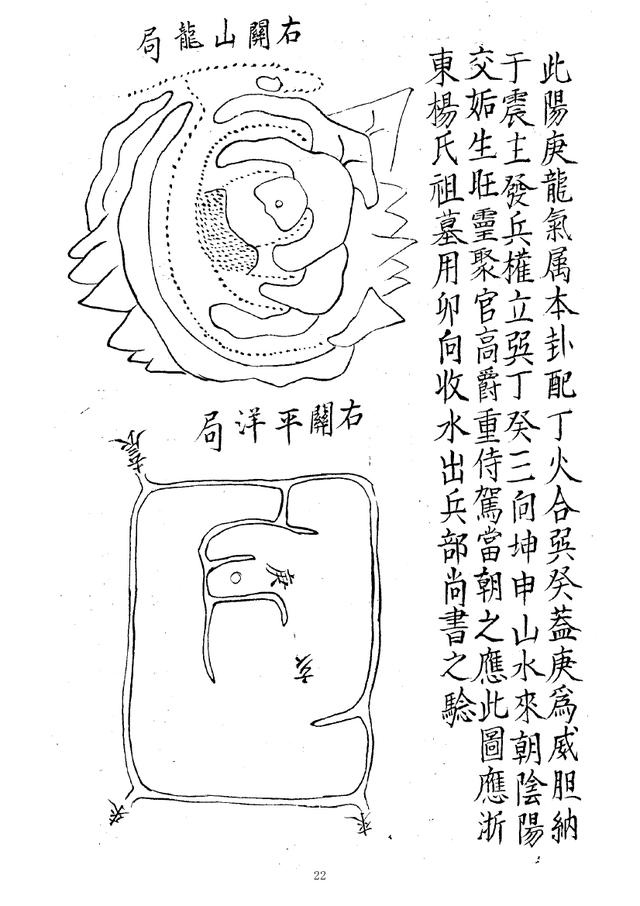 此陽庚龍氣属本卦配丁火合巽癸蓋庚爲威胆納
于震主發兵權立巽丁癸三向坤申山水來朝陰陽
交姤生旺靈聚官高爵重侍駕當朝之應此圖應浙
東楊氏祖墓用卯向收水出兵部尚書之驗
右關山龍局
右關平洋局
庚
亥
22